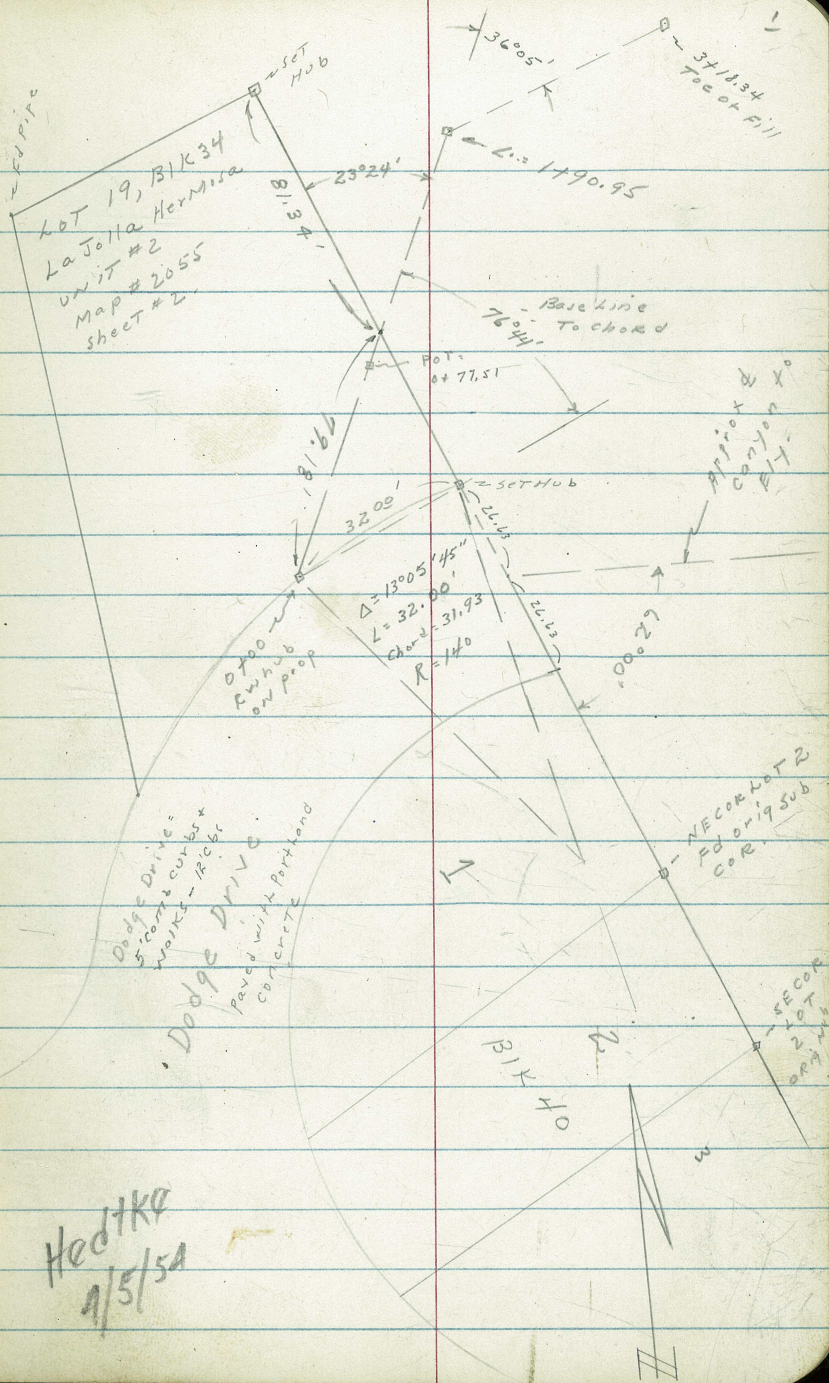 1
36°05'
~ 3+18.34
Toe of Fill
~ SET
Hub
~ Fd Pipe
L. = 1+90.95
23°24'
81.34'
LOT 19, Blk 34
La Jolla Hermosa
UNIT #2
Map # 2055
sheet #2.
76°44'
- Base Line
To Chord
POT =
0+77.51
Approx ¢
Canyon
~ SET Hub
32.00'
26.63
26.63
Δ = 13°05'45"
L = 32.00'
Chord = 31.93
R = 140
0+00
RW hub
on prop
62.00'
~ NE COR LOT 2
Fd orig Sub
COR.
1
Dodge Drive =
5' comb curbs +
walks - 12' cbs
Dodge Drive.
Paved with Portland
Concrete
~ SE COR
LOT
2
2
Blk 40
3
Hedtke
4/5/54